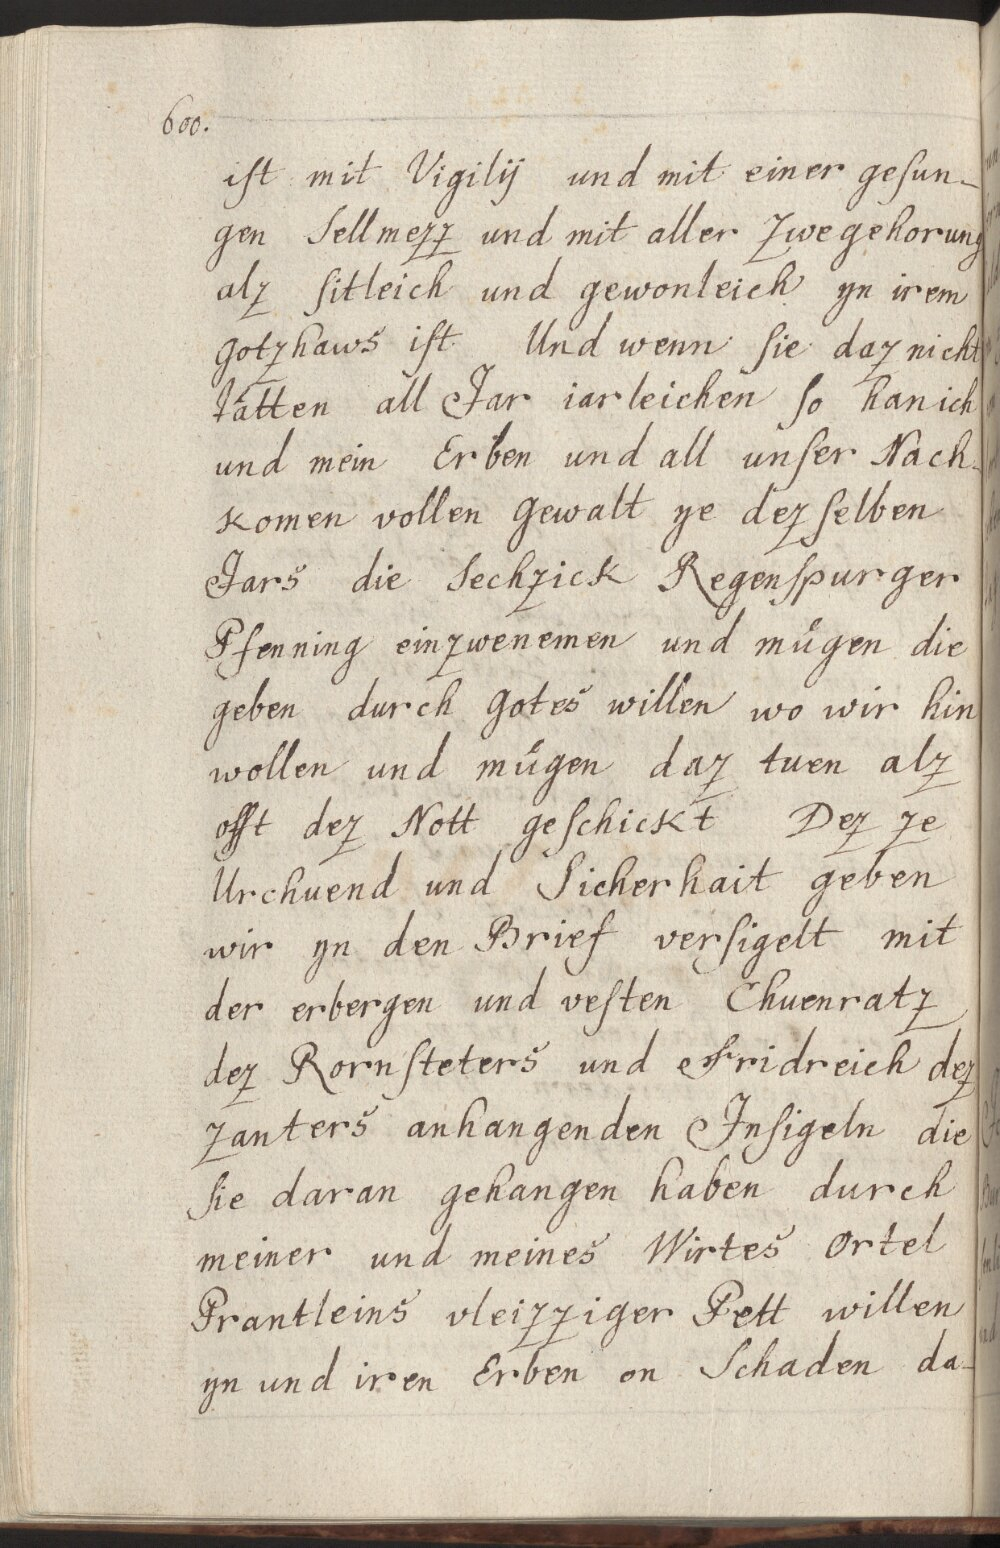 600.
iſt mit Vigilij und mit einer geſun-
gen Sellmezz und mit aller Zwegehorung
alz ſitleich und gewonleich yn irem
gotzhaws iſt Und wenn ſie daz nicht
tätten all Jar iarleichen ſo han ich
und mein Erben und all unſer Nach-
komen vollen gewalt ye dez ſelben
Jars die Sechzick Regenſpurger
Pfenning einzwenemen und mügen die
geben durch Gotes willen wo wir hin
wollen und mügen daz tuen alz
offt dez Nott geſchickt Dez ze
Urchuend und Sicherhait geben
wir yn den Brief verſigelt mit
der erbergen und veſten Chuenratz
dez Rornſteters und Fridreich dez
Zanters anhangenden Inſigeln die
ſie daran gehangen haben durch
meiner und meines Wirtes Ortel
Prantleins vleizziger Pett willen
yn und iren Erben on Schaden da-